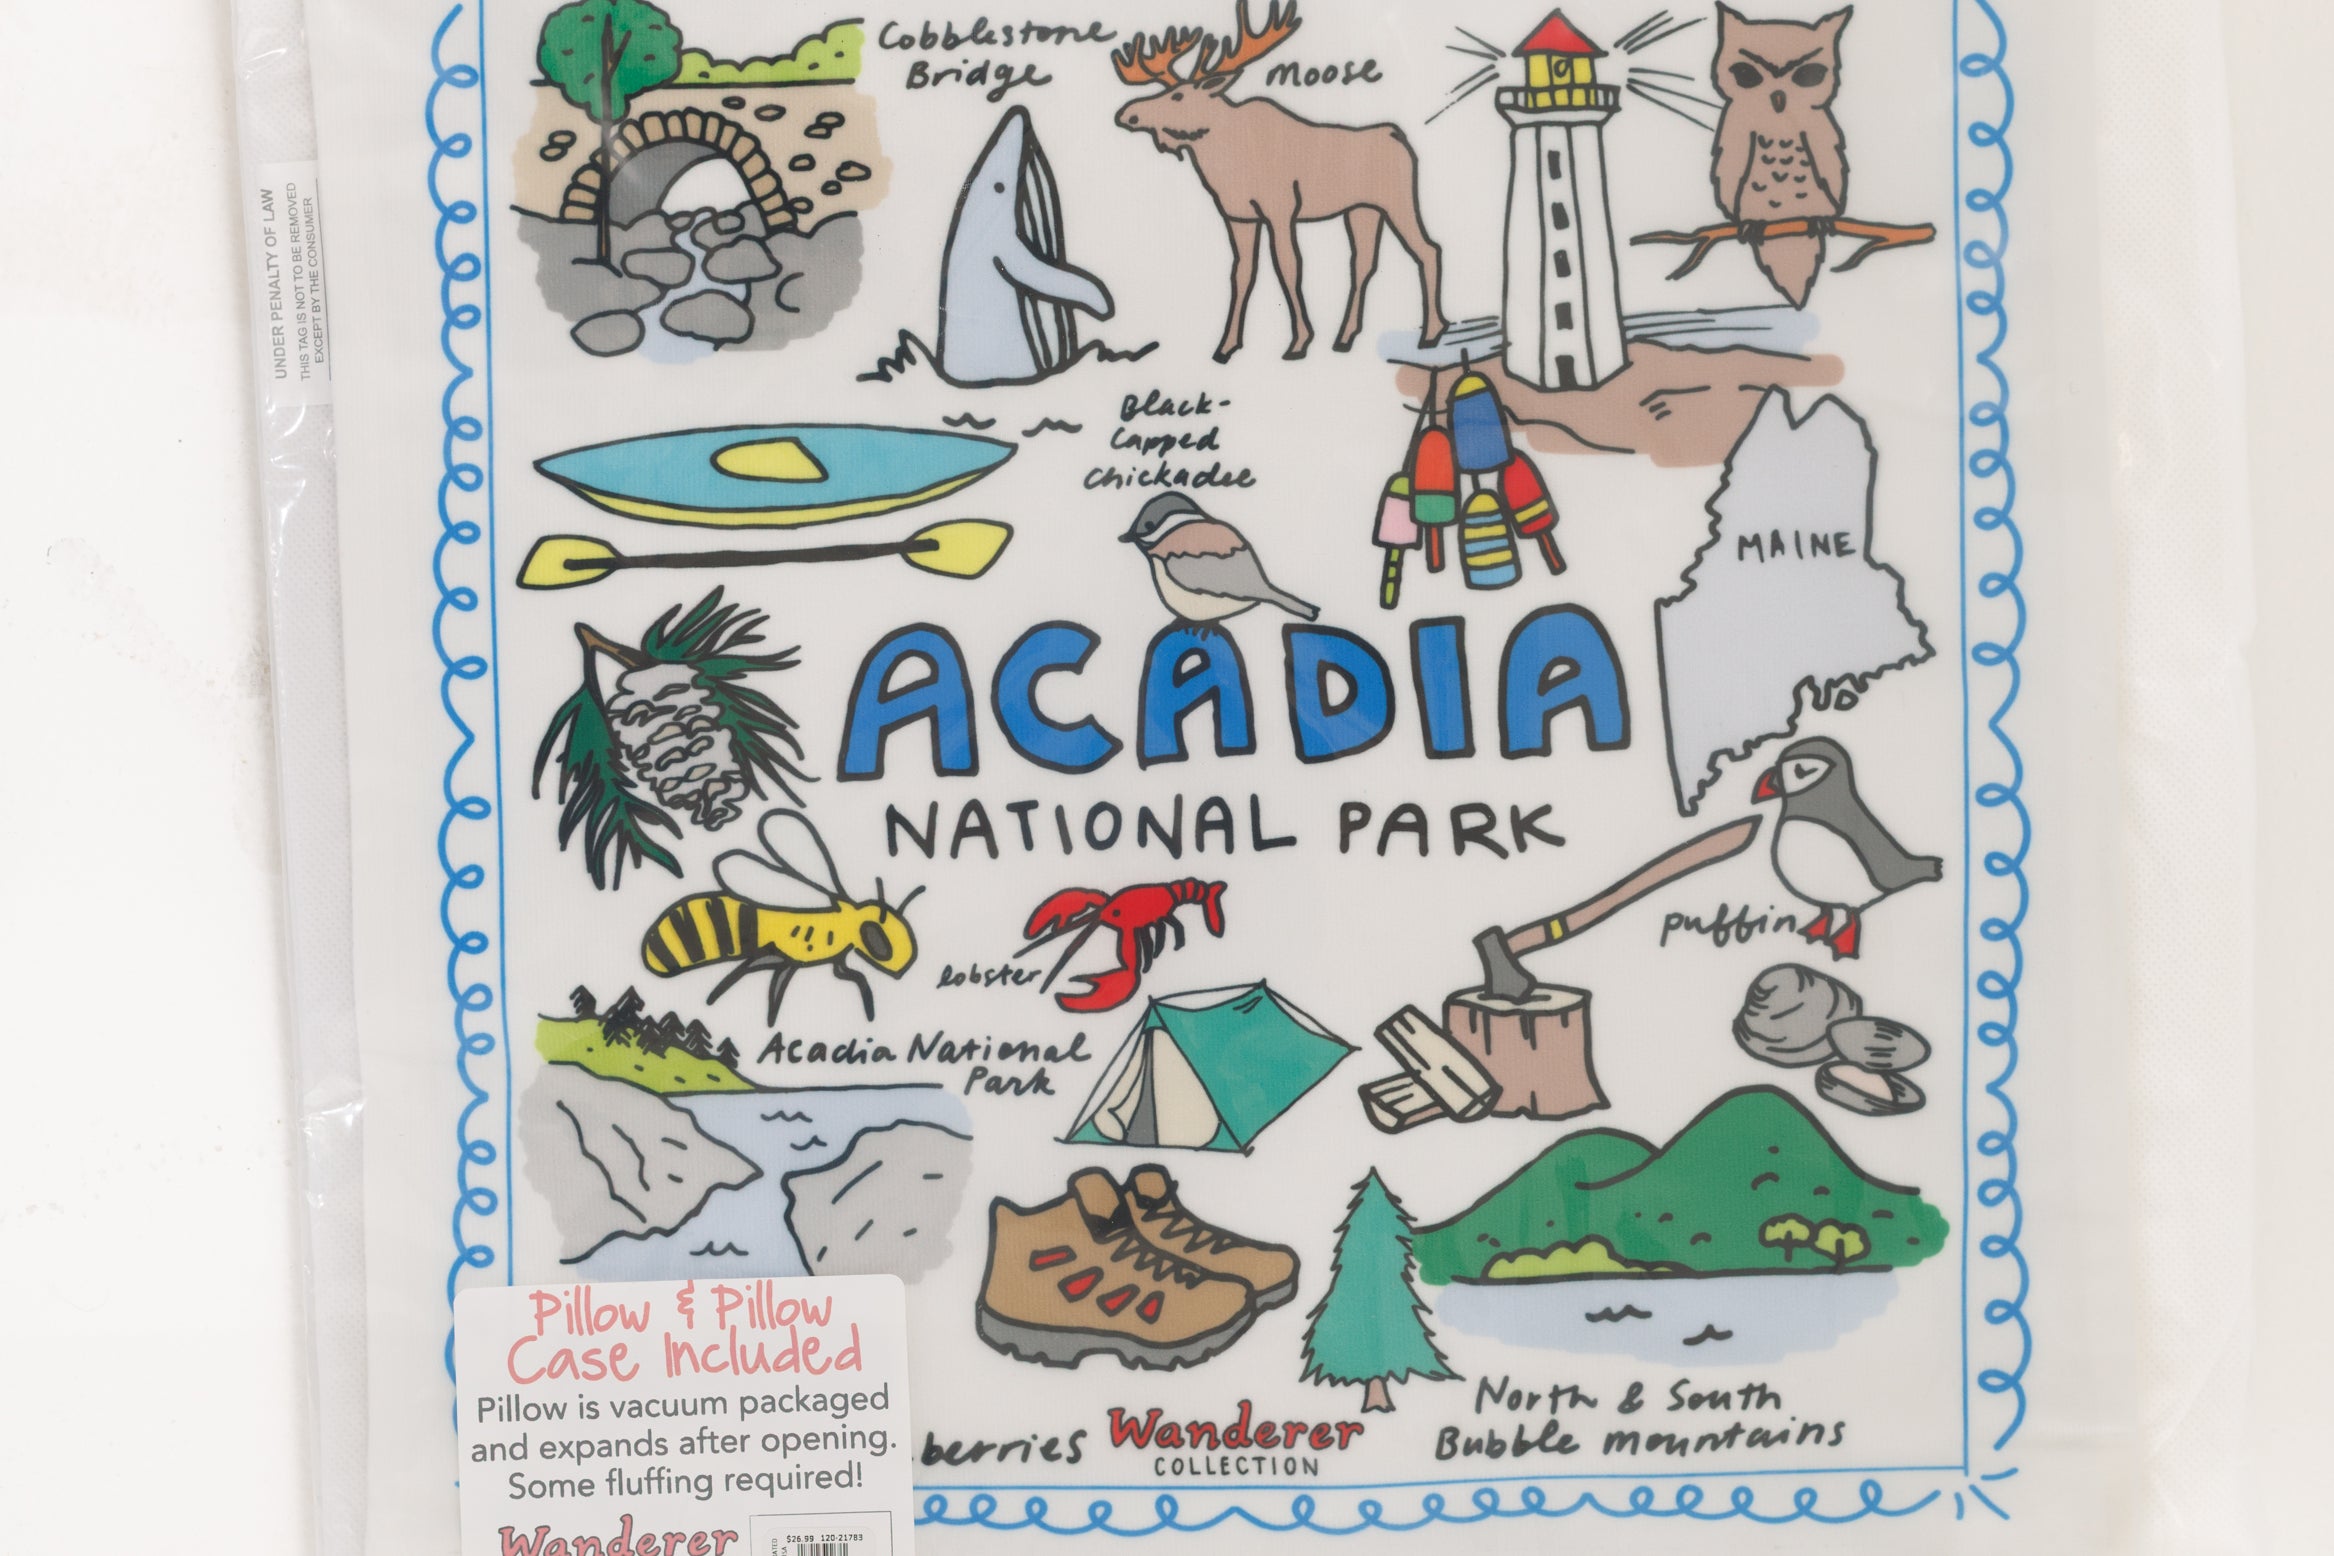 Cobblestone
Bridge
moose
UNDER PENALTY OF LAW
THIS TAG IS NOT TO BE REMOVED
EXCEPT BY THE CONSUMER
Black-
Capped
Chickadee
MAINE
ACADIA
NATIONAL PARK
puffin
lobster
Acadia National
Park
Pillow & Pillow
Case Included
Pillow is vacuum packaged
and expands after opening.
Some fluffing required!
Wanderer
$26.99 120-21783
berries
Wanderer
COLLECTION
North & South
Bubble mountains